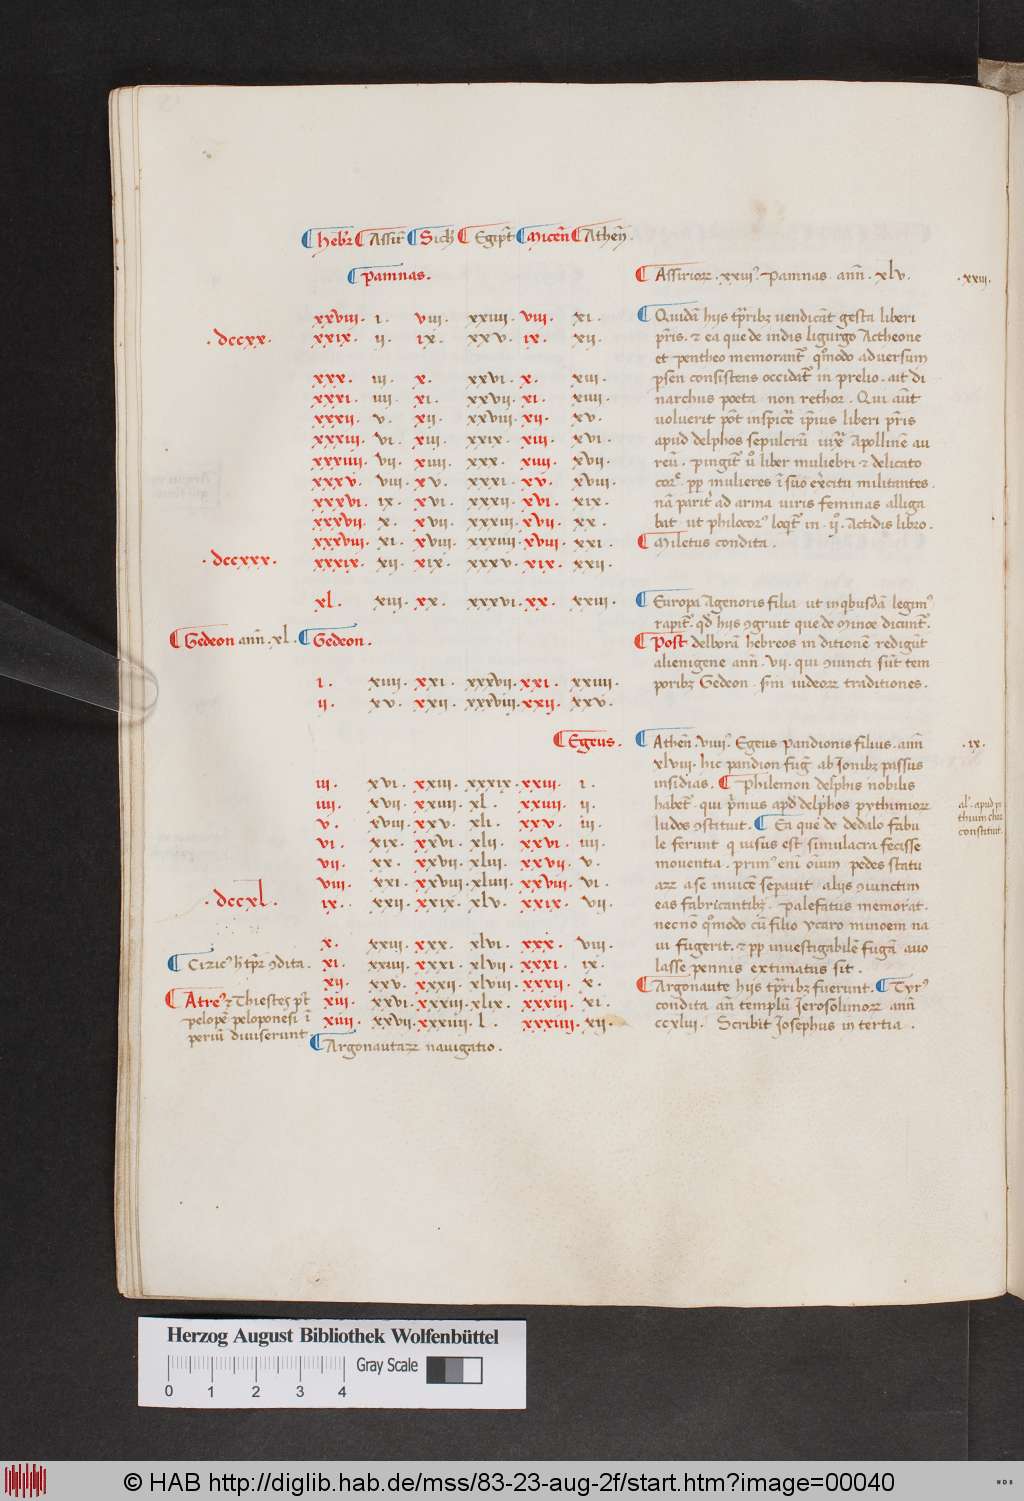 Hebr̄ Assir̄ Sich̄ Egipt̄ Micen̄ Athen̄.
Pamnas.
xxviii. i. viii. xxiiii. viii. xi.
.dccxx. xxix. ii. ix. xxv. ix. xii.
xxx. iii. x. xxvi. x. xiii.
xxxi. iiii. xi. xxvii. xi. xiiii.
xxxii. v. xii. xxviii. xii. xv.
xxxiii. vi. xiii. xxix. xiii. xvi.
xxxiiii. vii. xiiii. xxx. xiiii. xvii.
xxxv. viii. xv. xxxi. xv. xviii.
xxxvi. ix. xvi. xxxii. xvi. xix.
xxxvii. x. xvii. xxxiii. xvii. xx.
xxxviii. xi. xviii. xxxiiii. xviii. xxi.
.dccxxx. xxxix. xii. xix. xxxv. xix. xxii.
xl. xiii. xx. xxxvi. xx. xxiii.
Gedeon ann̄. xl. Gedeon.
i. xiiii. xxi. xxxvii. xxi. xxiiii.
ii. xv. xxii. xxxviii. xxii. xxv.
Egeus.
iii. xvi. xxiii. xxxix. xxiii. i.
iiii. xvii. xxiiii. xl. xxiiii. ii.
v. xviii. xxv. xli. xxv. iii.
vi. xix. xxvi. xlii. xxvi. iiii.
vii. xx. xxvii. xliii. xxvii. v.
viii. xxi. xxviii. xliiii. xxviii. vi.
.dccxl. ix. xxii. xxix. xlv. xxix. vii.
x. xxiii. xxx. xlvi. xxx. viii.
xi. xxiiii. xxxi. xlvii. xxxi. ix.
xii. xxv. xxxii. xlviii. xxxii. x.
xiii. xxvi. xxxiii. xlix. xxxiii. xi.
xiiii. xxvii. xxxiiii. l. xxxiiii. xii.
Argonautaꝝ nauigatio.
Cizicꝰ h̄ tp̄r ꝯdita.
Atreꝰ ⁊ Thiestes p̄t
pelopē peloponesi ī
periū diuiserunt
Assirioꝝ .xxiii.ꝰ Pamnas ann̄ .xlv. .xxiii.
Quidā hiis tp̄ribꝫ uendicāt gesta liberi
pr̄is. ⁊ ea que de indis ligurgo Actheone
et pentheo memorant̄ qͦmodo aduersum
psen consistens occidat̄ in prelio. ait di
narchus poeta non rethor. Qui aūt
uoluerit pōt inspicē ip̄ius liberi pr̄is
apud delphos sepulcrū iuxͣ Apollinē au
reū. Pingit̄ ṽo liber muliebri ⁊ delicato
corꝑe ꝓp mulieres ī suo exercitu militantes.
nā parit̄ ad arma uiris feminas alliga
bat ut philocorꝰ loqt̄ in ijͦ. Actidis libro.
Miletus condita.
Europa Agenoris filia ut in qbusdā legimꝰ
rapit̄. qd̄ hiis ꝯgruit que de Minoe dicunt̄.
Post delborā hebreos in ditionē redigūt
alienigene ann̄. vii. qui ꝯiuncti sūt tem
poribꝫ Gedeon. sm̄ iudeoꝝ traditiones.
Athen̄ .viiii.ꝰ Egeus pandionis filius. ann̄ .ix.
xlviii. hic pandion fuḡ ab Ionibꝫ passus
insidias. Philemon delphis nobilis
habet̄. qui p̄mius apd̄ delphos pythimioꝝ
ludos ꝯstituit. Ea que de dedalo fabu
le ferunt q uisus est simulacra fecisse
mouentia. primꝰ enī oīum pedes statu
aꝝ a se inuicē sepauit aliis ꝯiunctim
eas fabricantibꝫ. Palefatus memorat.
necnō qͦmodo cū filio ycaro minoem na
ui fugerit. ⁊ ꝓp inuestigabilē fugā auo
lasse pennis extimatus sit.
Argonaute hiis tp̄ribꝫ fuerunt. Tyrꝰ
condita an̄ templū Jerosolimoꝝ ann̄
ccxlii. Scribit Josephus in tertia.
al̄. apud pi
thium chor
constituit.
Herzog August Bibliothek Wolfenbüttel
Gray Scale
0 1 2 3 4
© HAB http://diglib.hab.de/mss/83-23-aug-2f/start.htm?image=00040